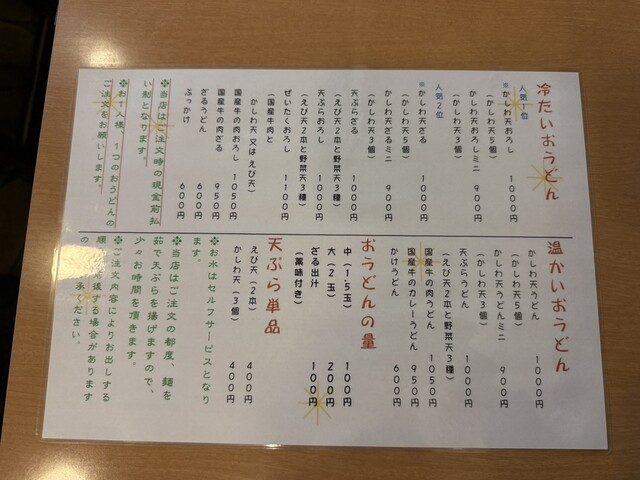 冷たいおうどん
人気1位
※かしわ天おろし 1000円
(かしわ天5個)
かしわ天おろしミニ 900円
(かしわ天3個)
人気2位
※かしわ天ざる 1000円
(かしわ天5個)
かしわ天ざるミニ 900円
(かしわ天3個)
天ぷらざる 1000円
(えび天2本と野菜天3種)
天ぷらおろし 1000円
(えび天2本と野菜天3種)
ぜいたくおろし 1100円
(国産牛肉と
かしわ天 又は えび天)
国産牛の肉おろし 1050円
国産牛の肉ざる 950円
ざるうどん 600円
ぶっかけ 600円
※当店はご注文時の現金前払
い制となります。
※お1人様、1つのおうどんの
ご注文をお願いします。
温かいおうどん
かしわ天うどん 1000円
(かしわ天5個)
かしわ天うどんミニ 900円
(かしわ天3個)
天ぷらうどん 1000円
(えび天2本と野菜天3種)
国産牛の肉うどん 1050円
国産牛のカレーうどん 950円
かけうどん 600円
おうどんの量
中(1.5玉) 100円
大(2玉) 200円
ざる出汁 100円
(薬味付き)
天ぷら単品
えび天(2本) 400円
かしわ天(3個) 400円
※お水はセルフサービスとなり
ます。
※当店はご注文の都度、麺を
茹で天ぷらを揚げますので、
少々お時間を頂きます。
※ご注文内容によりお出しする
順が前後する場合があります
承ください。